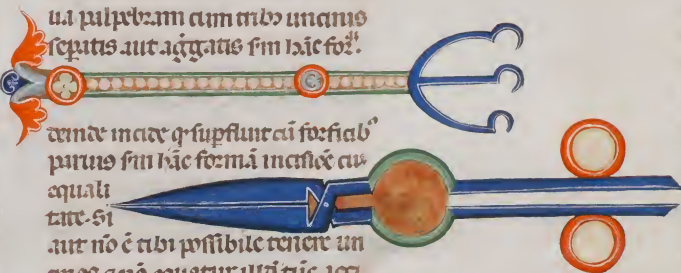 ua palpebram cum tribus uncinis
separatis aut aggatis sm hac for
deinde incide q supfluit cu forficib9
paruis sm hac forma incisioe cu
equali
tate. Si
aut no e tibi possibile tenere un